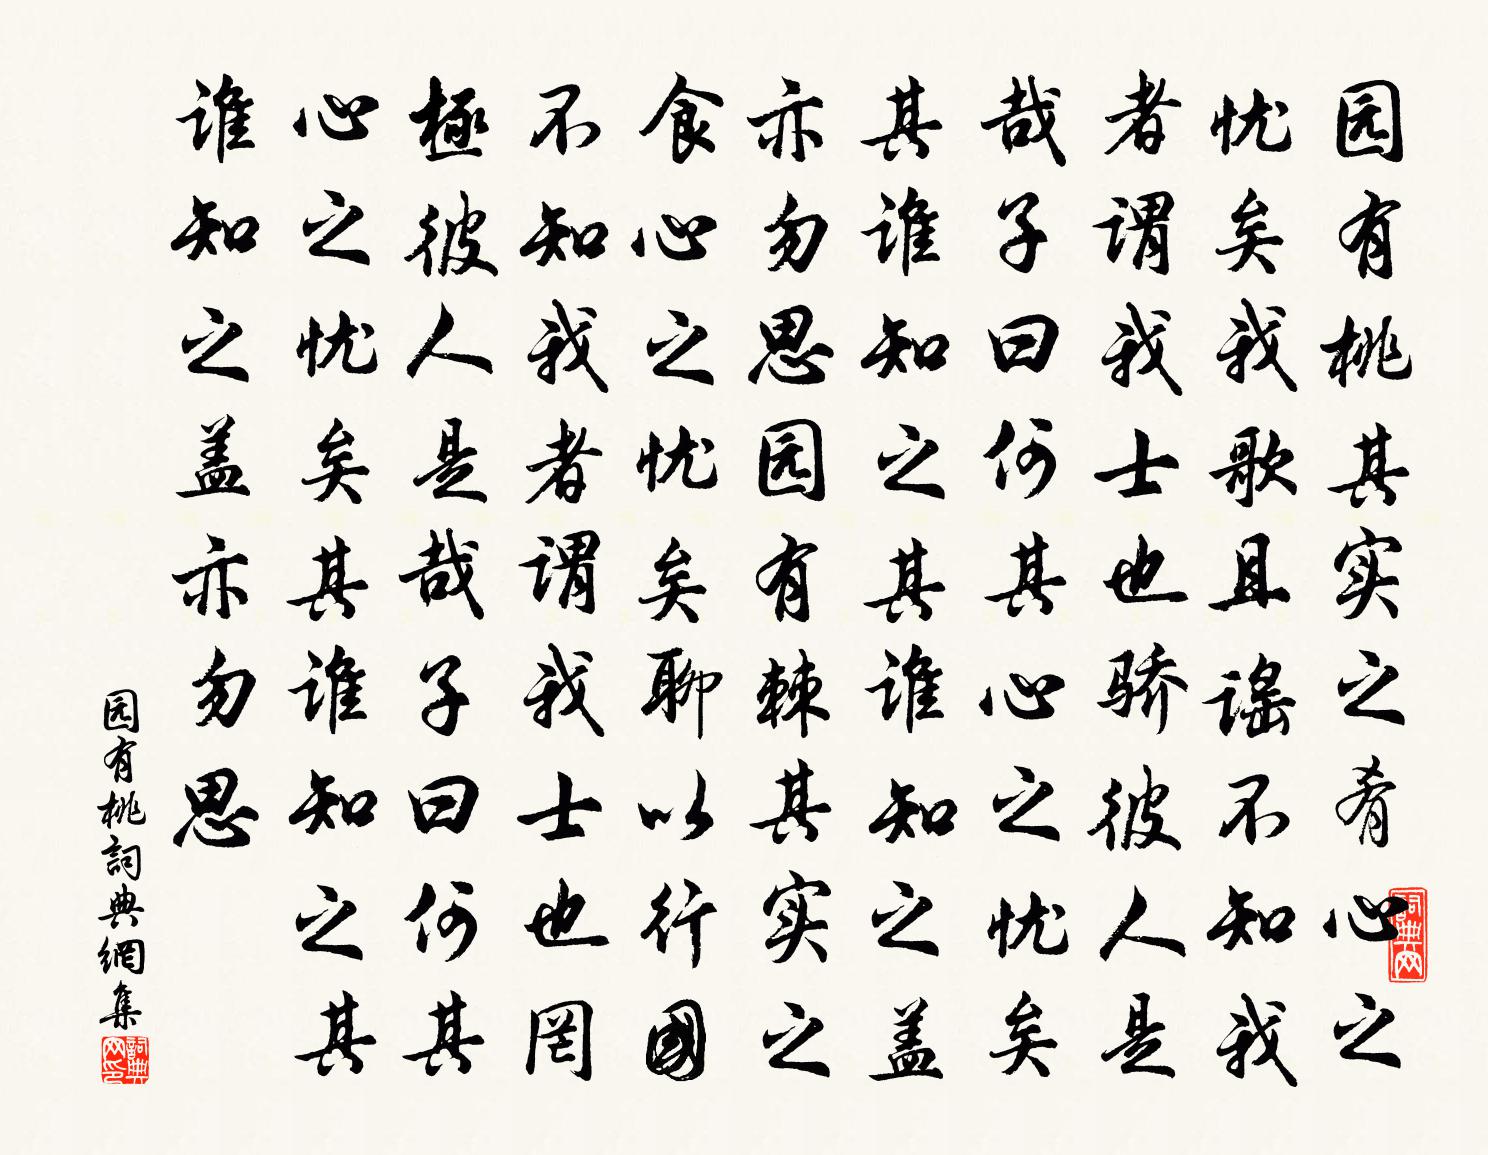 园有桃其实之肴心之
忧矣我歌且謡不知我
者谓我士也骄彼人是
哉子曰何其心之忧矣
其谁知之其谁知之盖
亦勿思园有棘其实之
食心之忧矣聊以行國
不知我者谓我士也罔
極彼人是哉子曰何其
心之忧矣其谁知之其
谁知之盖亦勿思
园有桃詞典網集
詞典网
詞典网印